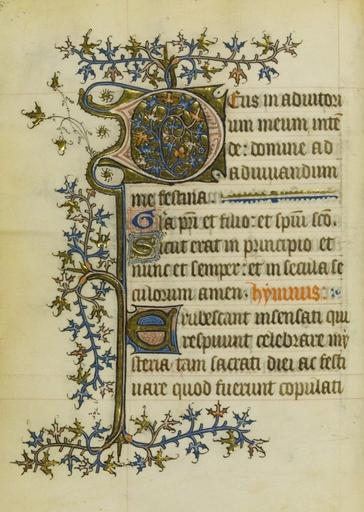 Deus in adiutori
um meum inte
de: domine ad
adiuuandum
me festina.
Gl'a pri et filio: et spiui sco.
Sicut erat in principio et
nunc et semper: et in secula se
culorum amen. hymnus:
Erubescant insensati qui
respuunt celebrare my
steria: tam sacrati diei ac festi
uare quod fuerunt copulati